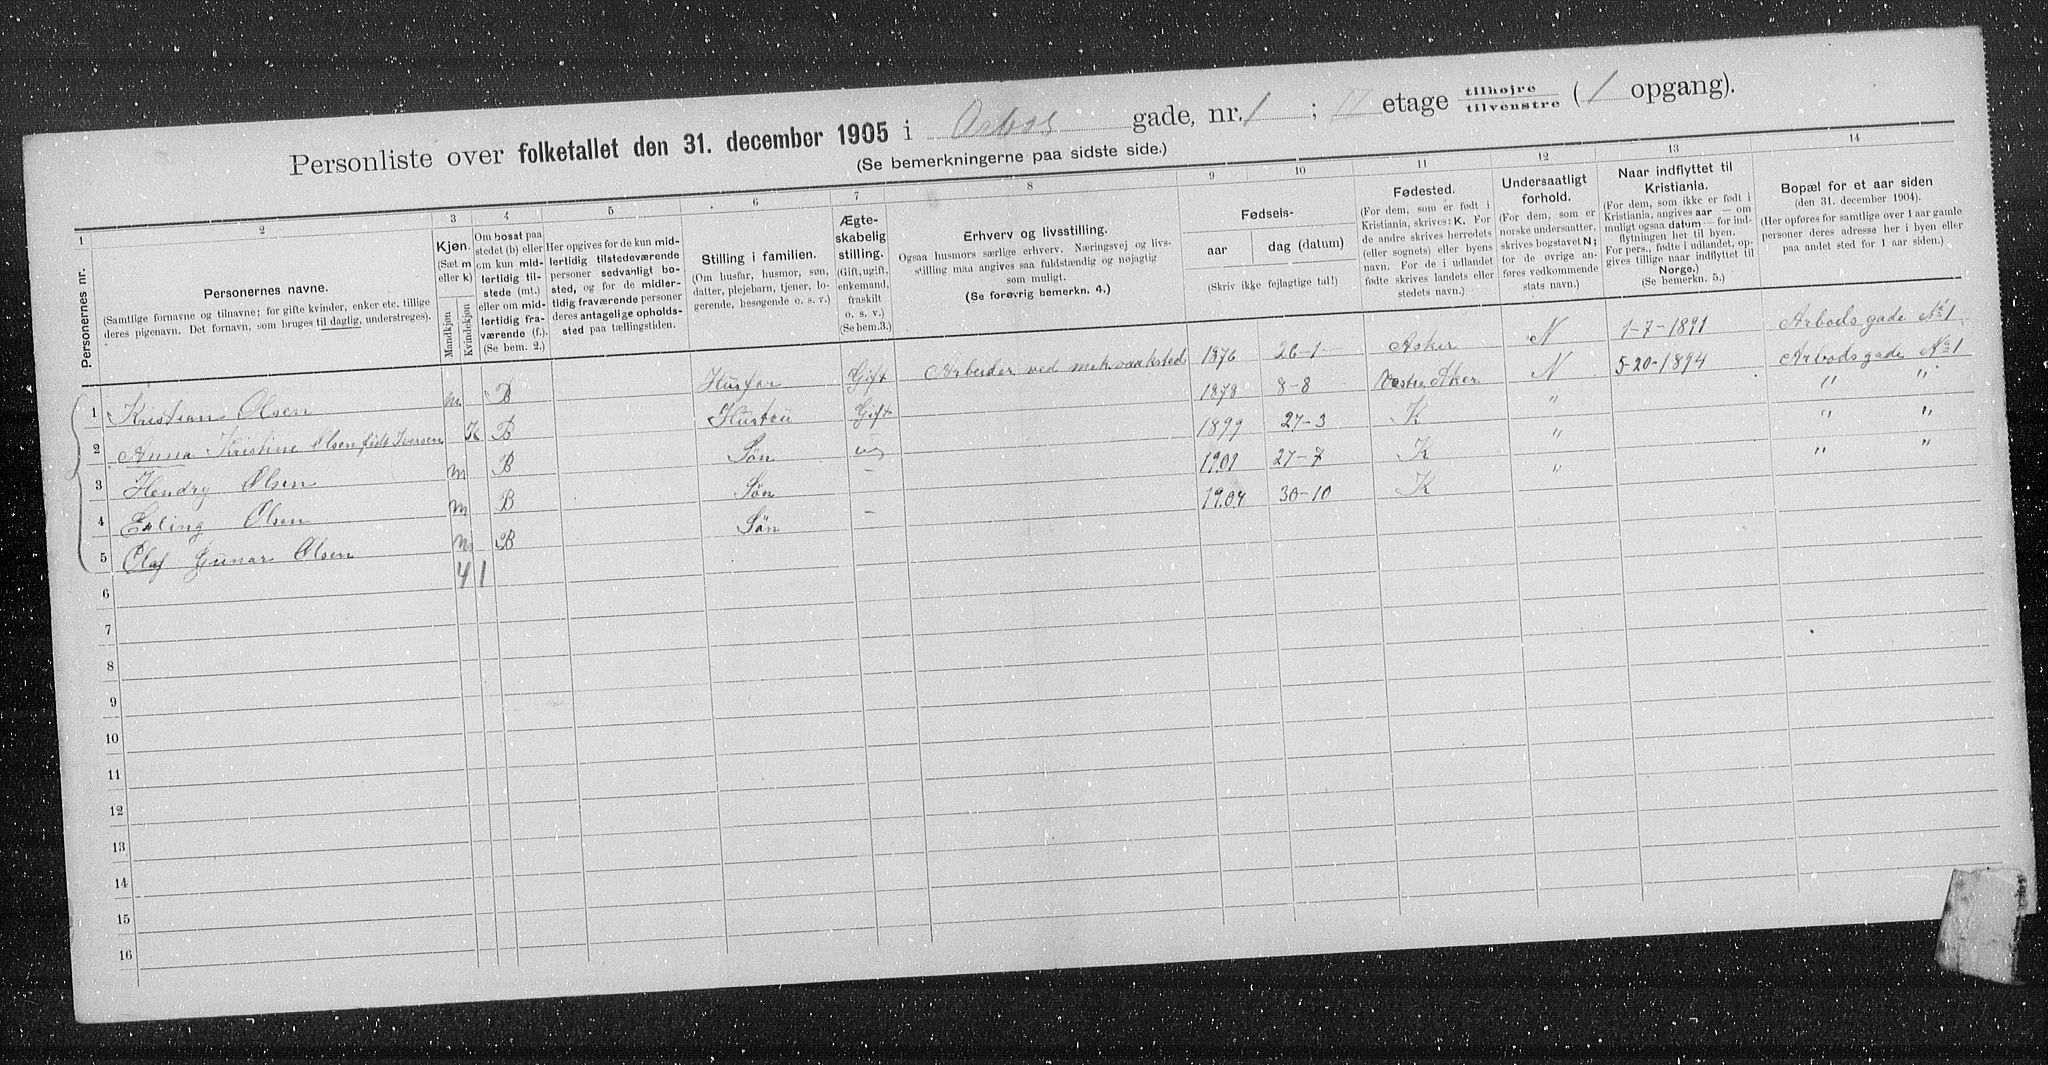 Personliste over folketallet den 31. december 1905 i Arbos gade, nr. 1 ; II etage tilhøjre tilvenstre ( 1 opgang).
(Se bemerkningerne paa sidste side.)
1 2 3 4 5 6 7 8 9 10 11 12 13 14
Personernes nr.
Personernes navne.
(Samtlige fornavne og tilnavne; for gifte kvinder, enker etc. tillige
deres pigenavn. Det fornavn, som bruges til daglig, understreges).
Kjøn.
(Sæt m
eller k)
Mandkjøn
Kvindekjøn
Om bosat paa
stedet (b) eller
om kun mid-
lertidig til-
stede (mt.)
eller om mid-
lertidig fra-
værende (f.).
(Se bem. 2.)
Her opgives for de kun mid-
lertidig tilstedeværende
personer sedvanligt bo-
sted, og for de midler-
tidig fraværende personer
deres antagelige opholds-
sted paa tællingstiden.
Stilling i familien.
(Om husfar, husmor, søn,
datter, plejebarn, tjener, lo-
gerende, besøgende o. s. v.)
Ægte-
skabelig
stilling.
(Gift, ugift,
enkemand,
fraskilt
o. s. v.)
(Se bem.3.)
Erhverv og livsstilling.
Ogsaa husmors særlige erhverv. Næringsvej og livs-
stilling maa angives saa fuldstændig og nøjagtig
som muligt.
(Se forøvrig bemerkn. 4.)
Fødsels-
aar dag (datum)
(Skriv ikke fejlagtige tal!)
Fødested.
(For dem, som er født i
Kristiania, skrives: K. For
de andre skrives herredets
(eller sognets) eller byens
navn. For de i udlandet
fødte skrives landets eller
stedets navn.)
Undersaatligt
forhold.
(For dem, som er
norske undersaatter,
skrives bogstavet N;
for de øvrige an-
føres vedkommende
stats navn.)
Naar indflyttet til
Kristiania.
(For dem, som ikke er født i
Kristiania, angives aar — om
muligt ogsaa datum — for ind-
flytningen het til byen.
For pers., fødte i udlandet, op-
gives tillige naar indflyttet til
Norge.)
(Se bemerkn. 5.)
Bopæl for et aar siden
(den 31. december 1904).
(Her opføres for samtlige over 1 aar gamle
personer deres adresse her i byen eller
paa andet sted for 1 aar siden.)
1 Kristian Olsen m B Husfar Gift Arbeider ved mekværksted 1876 26-1 Asker N 1-7-1891 Arbodsgade No 1
2 Anna Kristine Olsen født Iversen K B Hustru Gift 1878 8-8 Vestre Aker N 5-20-1894 Arbodsgade No 1
3 Hendry Olsen m B Søn ug 1899 27-3 K " " "
4 Erling Olsen m B Søn — 1901 27-7 K " " "
5 Olaf Gunar Olsen m B Søn — 1904 30-10 K " " "
6 4 1
7
8
9
10
11
12
13
14
15
16